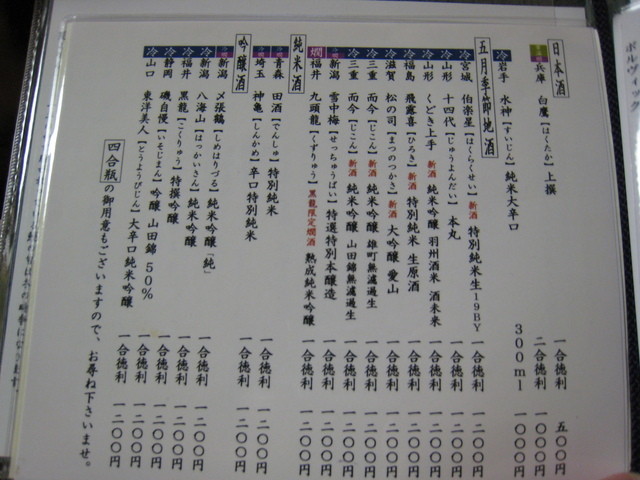 日本酒
兵庫 白鷹【はくたか】上撰 一合徳利 五〇〇円
二合徳利 一〇〇〇円
冷 岩手 水神【すいじん】純米大辛口 300ml 一〇〇〇円
五月季節地酒
冷 宮城 伯楽星【はくらくせい】新酒 特別純米生19BY 一合徳利 一二〇〇円
冷 山形 十四代【じゅうよんだい】本丸 一合徳利 一二〇〇円
冷 山形 くどき上手 新酒 純米吟醸 羽州酒米 酒未来 一合徳利 一二〇〇円
冷 福島 飛露喜【ひろき】新酒 特別純米 生原酒 一合徳利 一二〇〇円
冷 滋賀 松の司【まつのつかさ】新酒 大吟醸 愛山 一合徳利 一二〇〇円
冷 三重 而今【じこん】新酒 純米吟醸 雄町無濾過生 一合徳利 一二〇〇円
冷 三重 而今【じこん】新酒 純米吟醸 山田錦無濾過生 一合徳利 一二〇〇円
新潟 雪中梅【せっちゅうばい】特選特別本醸造 一合徳利 一二〇〇円
燗 福井 九頭龍【くずりゅう】黒龍限定燗酒 熟成純米吟醸 一合徳利 一二〇〇円
純米酒
青森 田酒【でんしゅ】特別純米 一合徳利 一二〇〇円
埼玉 神亀【しんかめ】辛口特別純米 一合徳利 一二〇〇円
吟醸酒
新潟 〆張鶴【しめはりづる】純米吟醸「純」 一合徳利 一二〇〇円
冷 新潟 八海山【はっかいさん】純米吟醸 一合徳利 一二〇〇円
冷 福井 黒龍【こくりゅう】特撰吟醸 一合徳利 一二〇〇円
冷 静岡 磯自慢【いそじまん】吟醸 山田錦50% 一合徳利 一二〇〇円
冷 山口 東洋美人【とうようびじん】大辛口純米吟醸 一合徳利 一二〇〇円
四合瓶の御用意もございますので、お尋ね下さいませ。